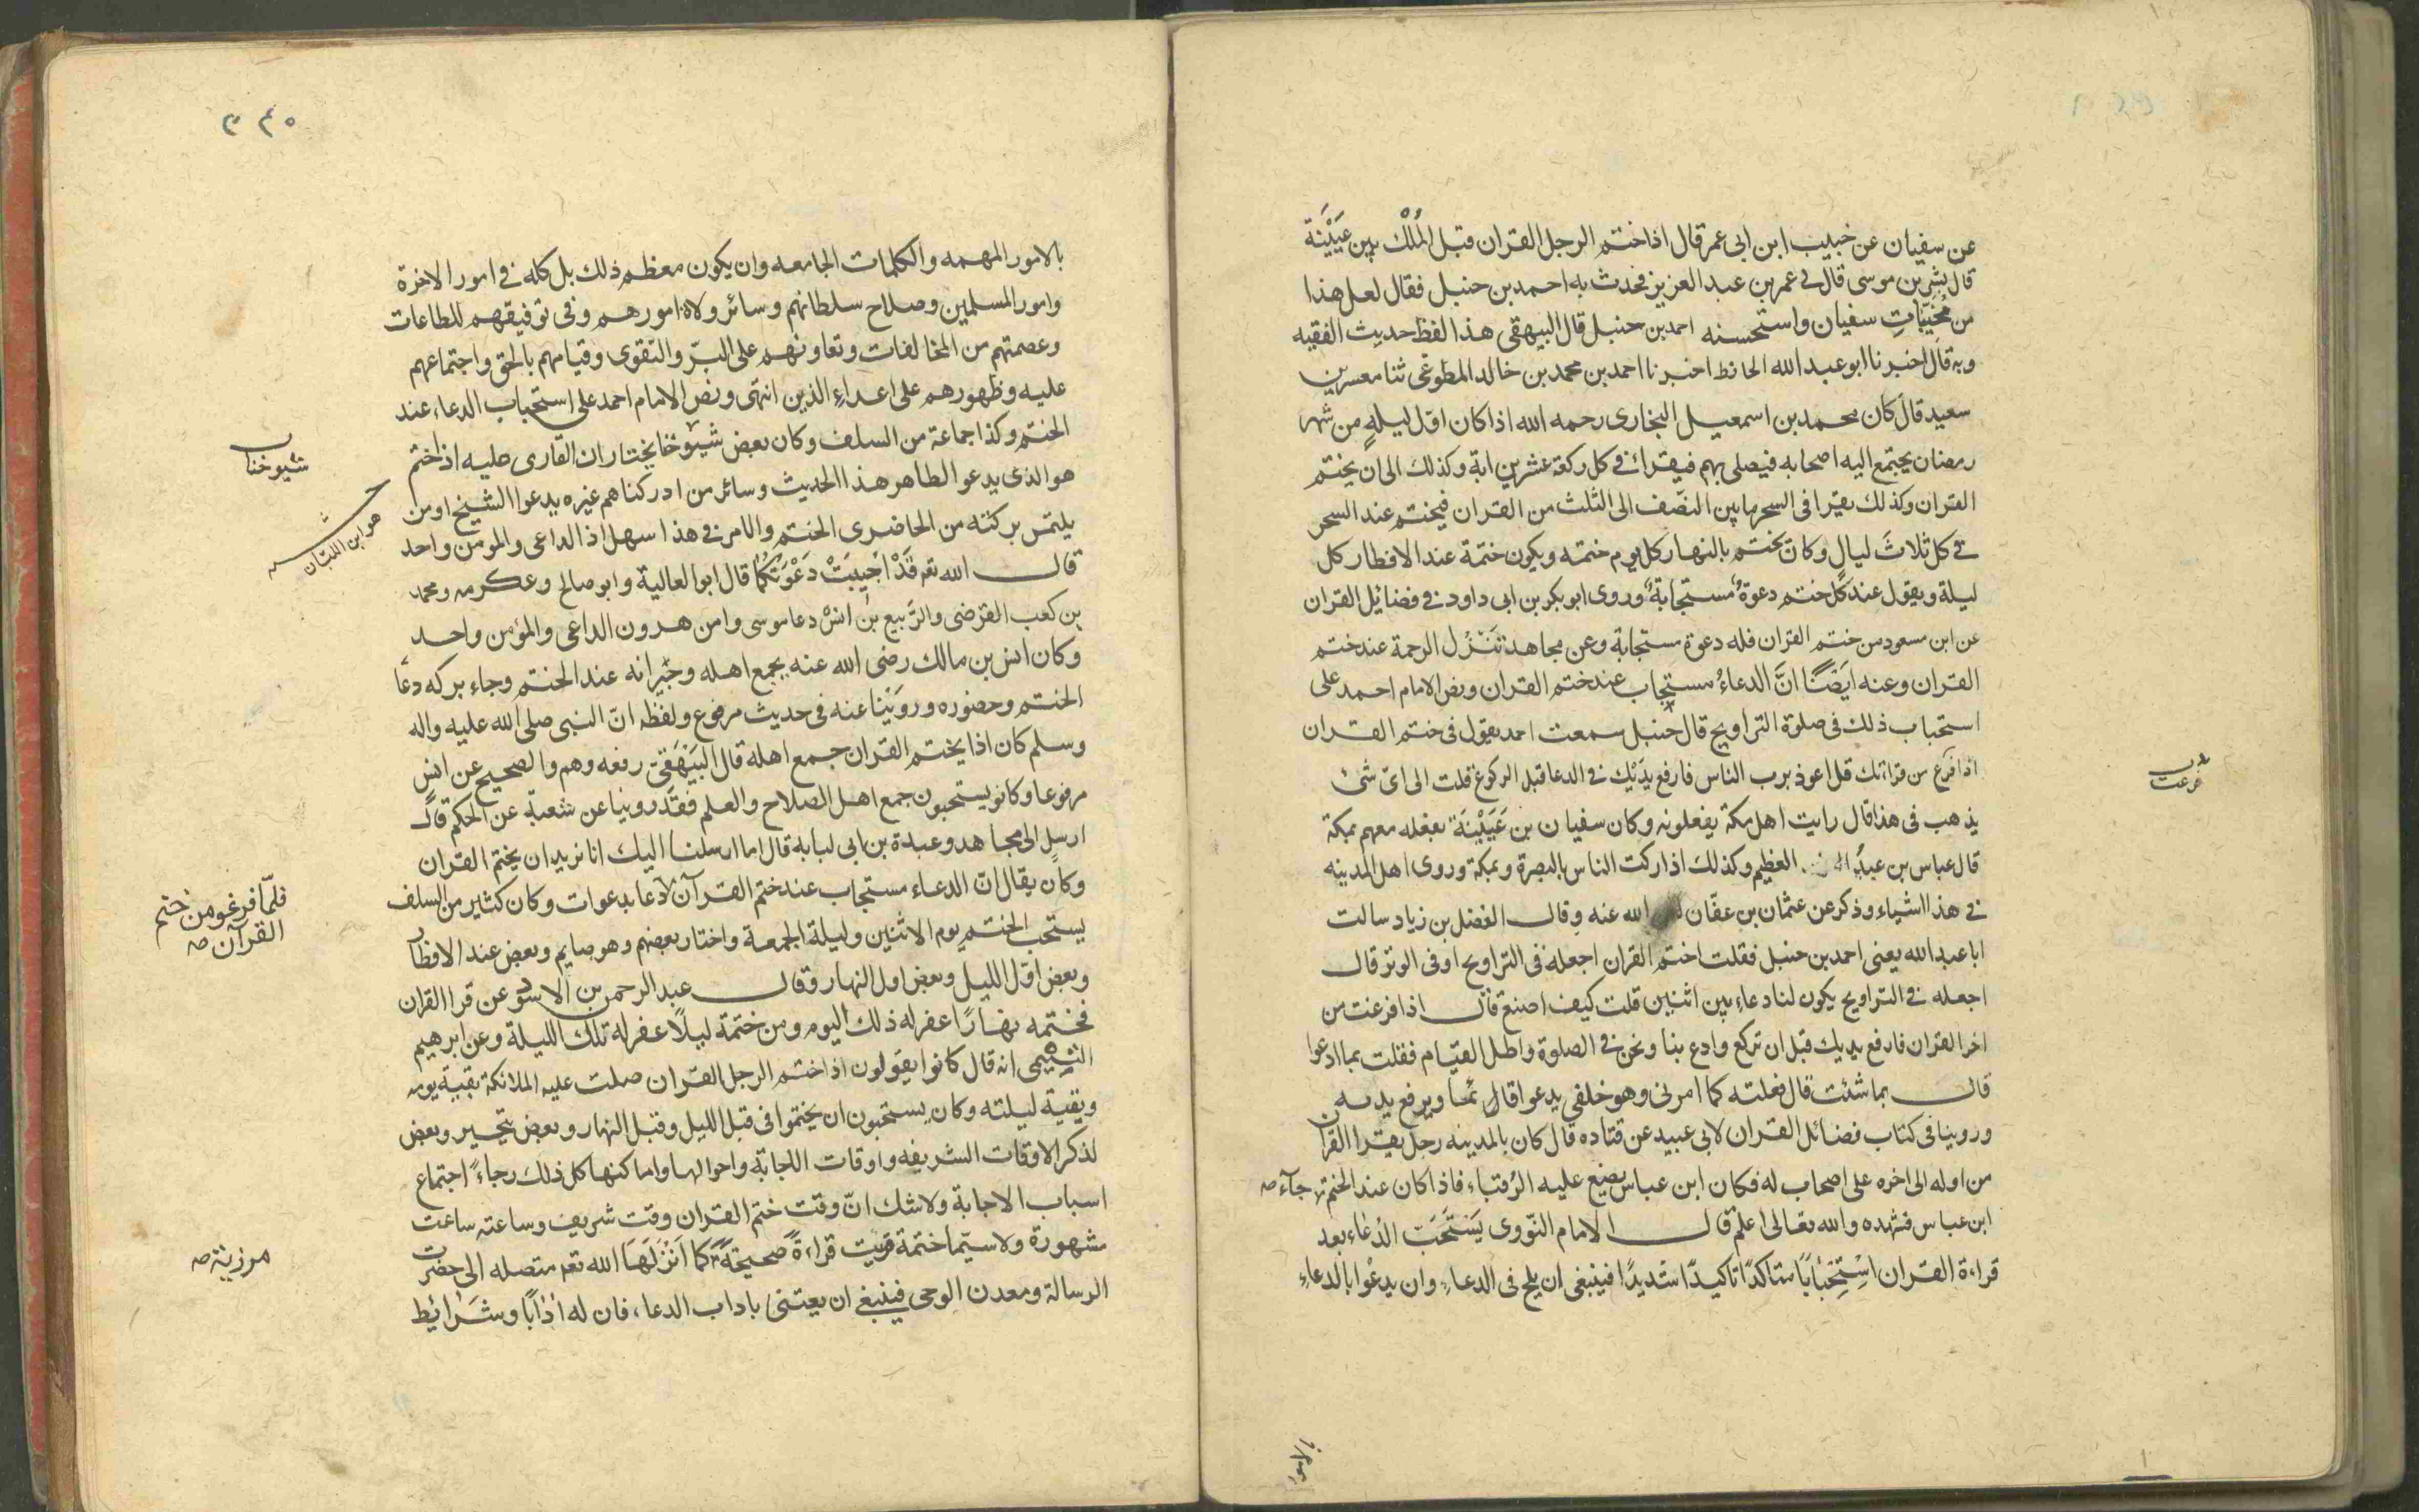 عن سفيان عن خبيب ابن ابى عمر قال اذا ختم الرجل القران قبل الملك بين عيينة
قال بشر بن موسى قال لى عمر بن عبد العزيز فحدث به احمد بن حنبل فقال لعل هذا
من مخبيات سفيان واستحسنه احمد بن حنبل قال البيهقى هذا لفظ حديث الفقيه
وبه قال اخبرنا ابو عبد الله الحافظ اخبرنا احمد بن محمد بن خالد المطوعى ثنا معسر بن
سعيد قال كان محمد بن اسمعيل البخارى رحمه الله اذا كان اول ليلة من شهر
رمضان يجتمع اليه اصحابه فيصلى بهم فيقرا فى كل ركعة عشرين اية وكذلك الى ان يختم
القران وكذلك يقرا فى السحر ما بين النصف الى الثلث من القران فيختم عند السحر
فى كل ثلاث ليال وكان يختم بالنهار كل يوم ختمه ويكون ختمة عند الافطار كل
ليلة ويقول عند كل ختم دعوة مستجابة وروى ابو بكر بن ابى داود فى فضائل القران
عن ابن مسعود من ختم القران فله دعوة مستجابة وعن مجاهد تنزل الرحمة عند ختم
القران وعنه ايضا ان الدعاء مستجاب عند ختم القران ونص الامام احمد على
استحباب ذلك فى صلوة التراويح قال حنبل سمعت احمد يقول فى ختم القران
اذا فرغ من قراءتك قل اعوذ برب الناس فارفع يديك فى الدعا قبل الركوع قلت الى اى شئ
فرغت
يذهب فى هذا قال رايت اهل مكة يفعلونه وكان سفيان بن عيينة يفعله معهم بمكة
قال عباس بن عبد العظيم وكذلك ادركت الناس بالبصرة وبمكة وروى اهل المدينه
فى هذا اشياء وذكر عن عثمان بن عفان الله عنه وقال الفضل بن زياد سالت
ابا عبد الله يعنى احمد بن حنبل فقلت اختم القران اجعله فى التراويح او فى الوتر قال
اجعله فى التراويح يكون لنا دعاء بين اثنين قلت كيف اصنع قال اذا فرغت من
اخر القران فارفع يديك قبل ان تركع وادع بنا ونحن فى الصلوة واطل القيام فقلت بما ادعوا
قال بما شئت قال فعلته كما امرنى وهو خلفى يدعوا قائما ويرفع يديه
وروينا فى كتاب فضائل القران لابى عبيد عن قتاده قال كان بالمدينه رجل يقرا القران
من اوله الى اخره على اصحاب له فكان ابن عباس يضع عليه الرقباء فاذا كان عند الختم جآء صه
ابن عباس فشهده والله تعالى اعلم قال الامام النووى يستحب الدعاء بعد
قراءة القران استحبابا متاكدا تاكيدا شديدا فينبغى ان يلح فى الدعاء وان يدعوا بالدعاء
بالامور
١
٣٤٥
بالامور المهمه والكلمات الجامعه وان يكون معظم ذلك بل كله فى امور الاخرة
وامور المسلمين وصلاح سلطانهم وسائر ولاة امورهم وفى توفيقهم للطاعات
وعصمتهم من المخالفات وتعاونهم على البر والتقوى وقيامهم بالحق واجتماعهم
عليه وظهورهم على اعداء الذين انتهى ونص الامام احمد على استحباب الدعاء عند
الختم وكذا جماعة من السلف وكان بعض شيوخنا يختار ان القارى عليه اذا ختم
شيوخنا
هو الذى يدعو الطاهر هذا الحديث وسائر من ادركناهم غيره يدعوا الشيخ او من
هو ابن اللبان
يلتمس بركته من الحاضرى الختم والامر فى هذا سهل اذ الداعى والمومن واحد
قال الله تعم قد اجيبت دعوتكما قال ابو العالية وابو صالح وعكرمه ومحمد
بن كعب القرضى والربيع بن انس دعا موسى وامن هرون الداعى والمؤمن واحد
وكان انس بن مالك رضى الله عنه يجمع اهله وجيرانه عند الختم وجاء بركه دعآ
الختم وحضوره وروينا عنه فى حديث مرفوع ولفظه ان النبى صلى الله عليه واله
وسلم كان اذا يختم القران جمع اهله قال البيهقى رفعه وهم والصحيح عن انس
مرفوعا وكانو يستحبون جمع اهل الصلاح والعلم فقد روينا عن شعبة عن الحكم قال
ارسل الى مجاهد وعبدة بن ابى لبابة قال اما ارسلنا اليك انا نريد ان يختم القران
وكان يقال ان الدعاء مستجاب عند ختم القرآن لادعا بدعوات وكان كثير من السلف
فلما فرغو من ختم القرآن صه
يستحب الختم يوم الاثنين وليلة الجمعة واختار بعضهم وهو صايم وبعض عند الافطار
وبعض اول الليل وبعض اول النهار وقال عبد الرحمن بن الاسود عن قرا القران
فختمه نهارا غفر له ذلك اليوم ومن ختمة ليلا غفر له تلك الليلة وعن ابرهيم
التيمى انه قال كانوا يقولون اذا ختم الرجل القران صلت عليه الملائكة بقية يومه
وبقية ليلته وكان يستحبون ان يختموا فى قبل الليل وقبل النهار وبعض يتحير وبعض
لذكر الاوقات الشريفه واوقات اللجابة واحوالها واماكنها كل ذلك رجاء اجتماع
اسباب الاجابة ولا شك ان وقت ختم القران وقت شريف وساعته ساعت
مشهورة ولا سيما ختمة قريت قراءة صحيحة كما انزلها الله تعم متصله الى حضرت
مرزية صه
الرسالة ومعدن الوحى فينبغى ان يعتنى باداب الدعاء، فان له ادابا وشرايط